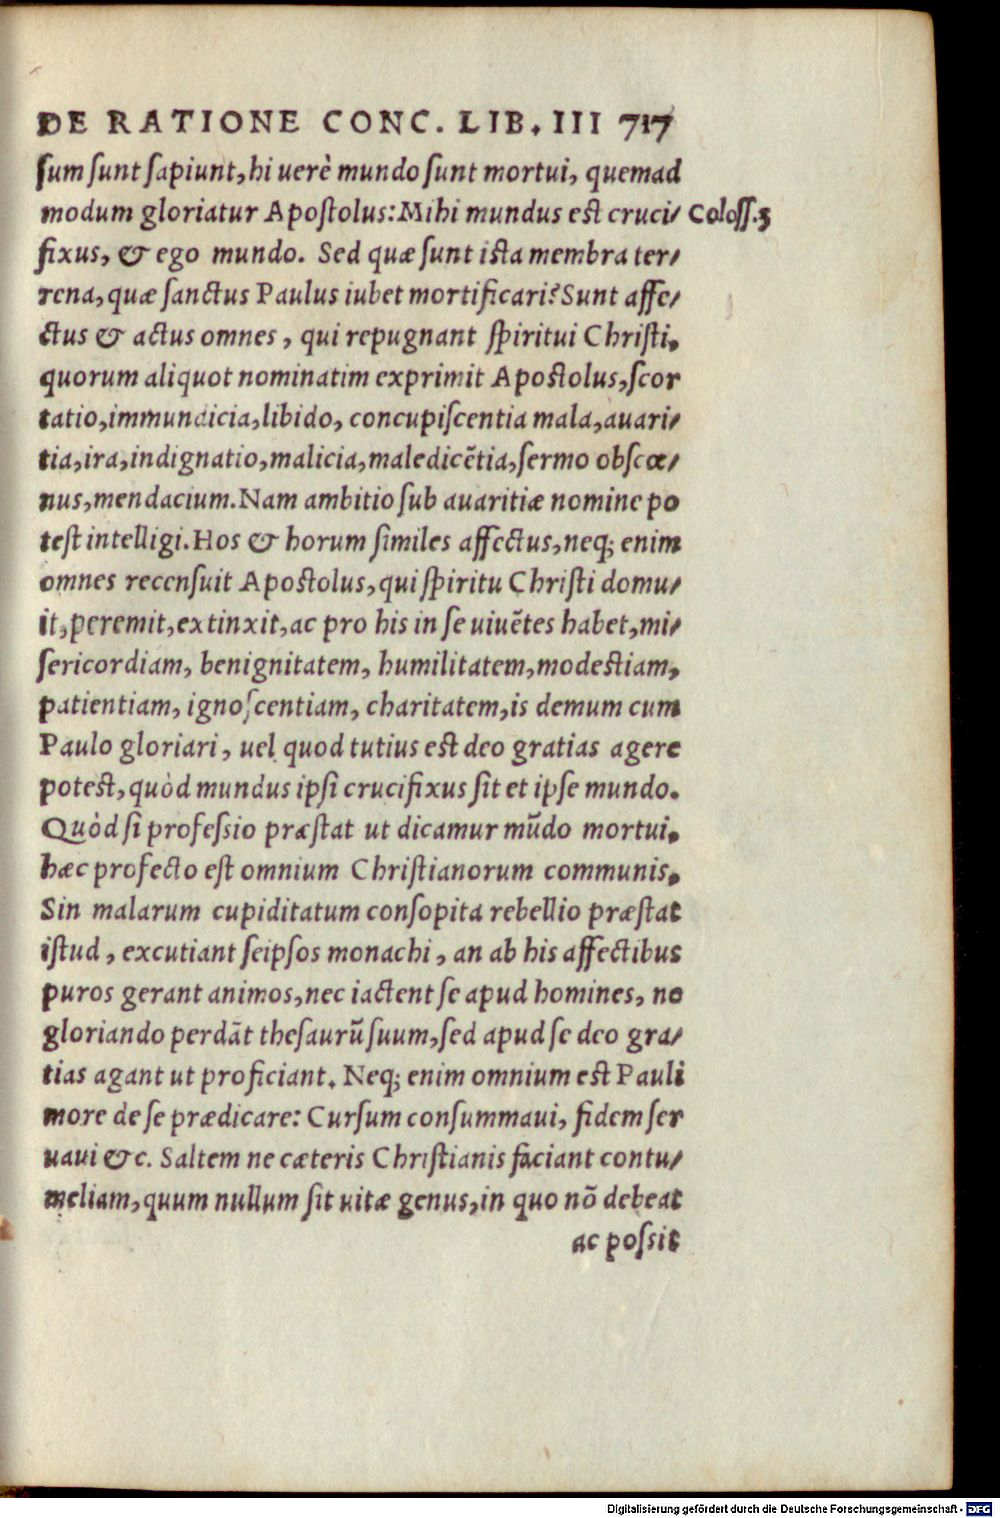 DE RATIONE CONC. LIB. III 717
sum sunt sapiunt, hi uerè mundo sunt mortui, quemad
modum gloriatur Apostolus: Mihi mundus est cruci/ Coloss.3
fixus, & ego mundo. Sed quæ sunt ista membra ter/
rena, quæ sanctus Paulus iubet mortificari? Sunt affe/
ctus & actus omnes, qui repugnant spiritui Christi,
quorum aliquot nominatim exprimit Apostolus, scor
tatio, immundicia, libido, concupiscentia mala, auari/
tia, ira, indignatio, malicia, maledicẽtia, sermo obscœ/
nus, mendacium. Nam ambitio sub auaritiæ nomine po
test intelligi. Hos & horum similes affectus, neq; enim
omnes recensuit Apostolus, qui spiritu Christi domu/
it, peremit, extinxit, ac pro his in se uiuẽtes habet, mi/
sericordiam, benignitatem, humilitatem, modestiam,
patientiam, ignoscentiam, charitatem, is demum cum
Paulo gloriari, uel quod tutius est deo gratias agere
potest, quòd mundus ipsi crucifixus sit et ipse mundo.
Quòd si professio præstat ut dicamur mũdo mortui,
hæc profecto est omnium Christianorum communis,
Sin malarum cupiditatum consopita rebellio præstat
istud, excutiant seipsos monachi, an ab his affectibus
puros gerant animos, nec iactent se apud homines, ne
gloriando perdãt thesaurũ suum, sed apud se deo gra/
tias agant ut proficiant. Neq; enim omnium est Pauli
more de se prædicare: Cursum consummaui, fidem ser
uaui &c. Saltem ne cæteris Christianis faciant contu/
meliam, quum nullum sit uitæ genus, in quo nõ debeat
ac possit
Digitalisierung gefördert durch die Deutsche Forschungsgemeinschaft - DFG